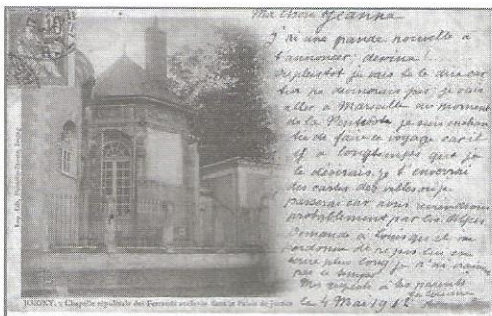 Ma chère Jeanne
J'ai une grande nouvelle à
t'annoncer; devine!
ou plutôt je vais te le dire car
tu ne devinerais pas je vais
aller à Marseille au moment
de la Pentecôte je suis enchan
tée de faire ce voyage car il
y a longtemps que je
le désirais, je t'enverrai
des cartes des villes où je
passerai car nous reviendrons
probablement par les Alpes
Demande à Louis qu'il me
pardonne de ne pas lui en
écrire plus long je n'ai vraiment
pas le temps
Mes respects à tes parents
le 4 Mai 1912
JOIGNY. - Chapelle sépulcrale des Ferrands enclavée dans le Palais de Justice